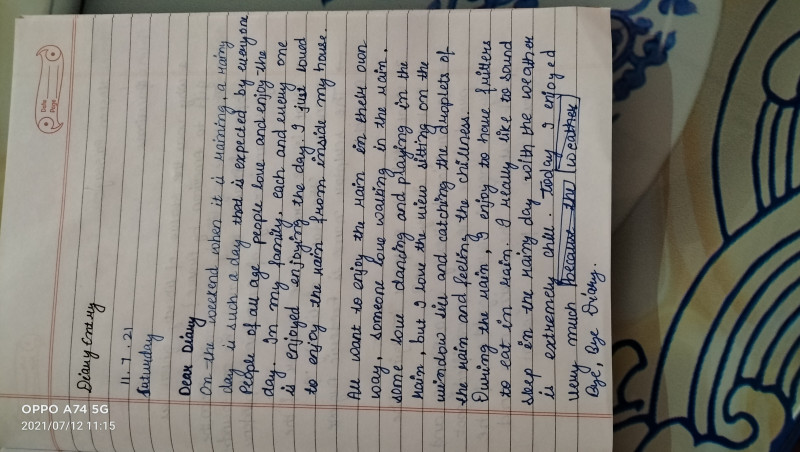 Date
Page
Diary Entry
11.7.21
Saturday
Dear Diary
On the weekend when it is raining, a rainy
day is such a day that is expected by everyone
People of all age people love and enjoy the
day. In my family, each and every one
is enjoyed enjoying the day. I just loved
to enjoy the rain from inside my house.
All want to enjoy the rain in their own
way, someone love walking in the rain,
some love dancing and playing in the
rain, but I love the view sitting on the
window sill and catching the droplets of
the rain and feeling the chillness.
During the rain, I enjoy to have fritters
to eat in rain. I really like to sound
sleep in the rainy day with the weather
is extremely chill. Today I enjoyed
very much because the weather
Bye, Bye Diary.
OPPO A74 5G
2021/07/12 11:15